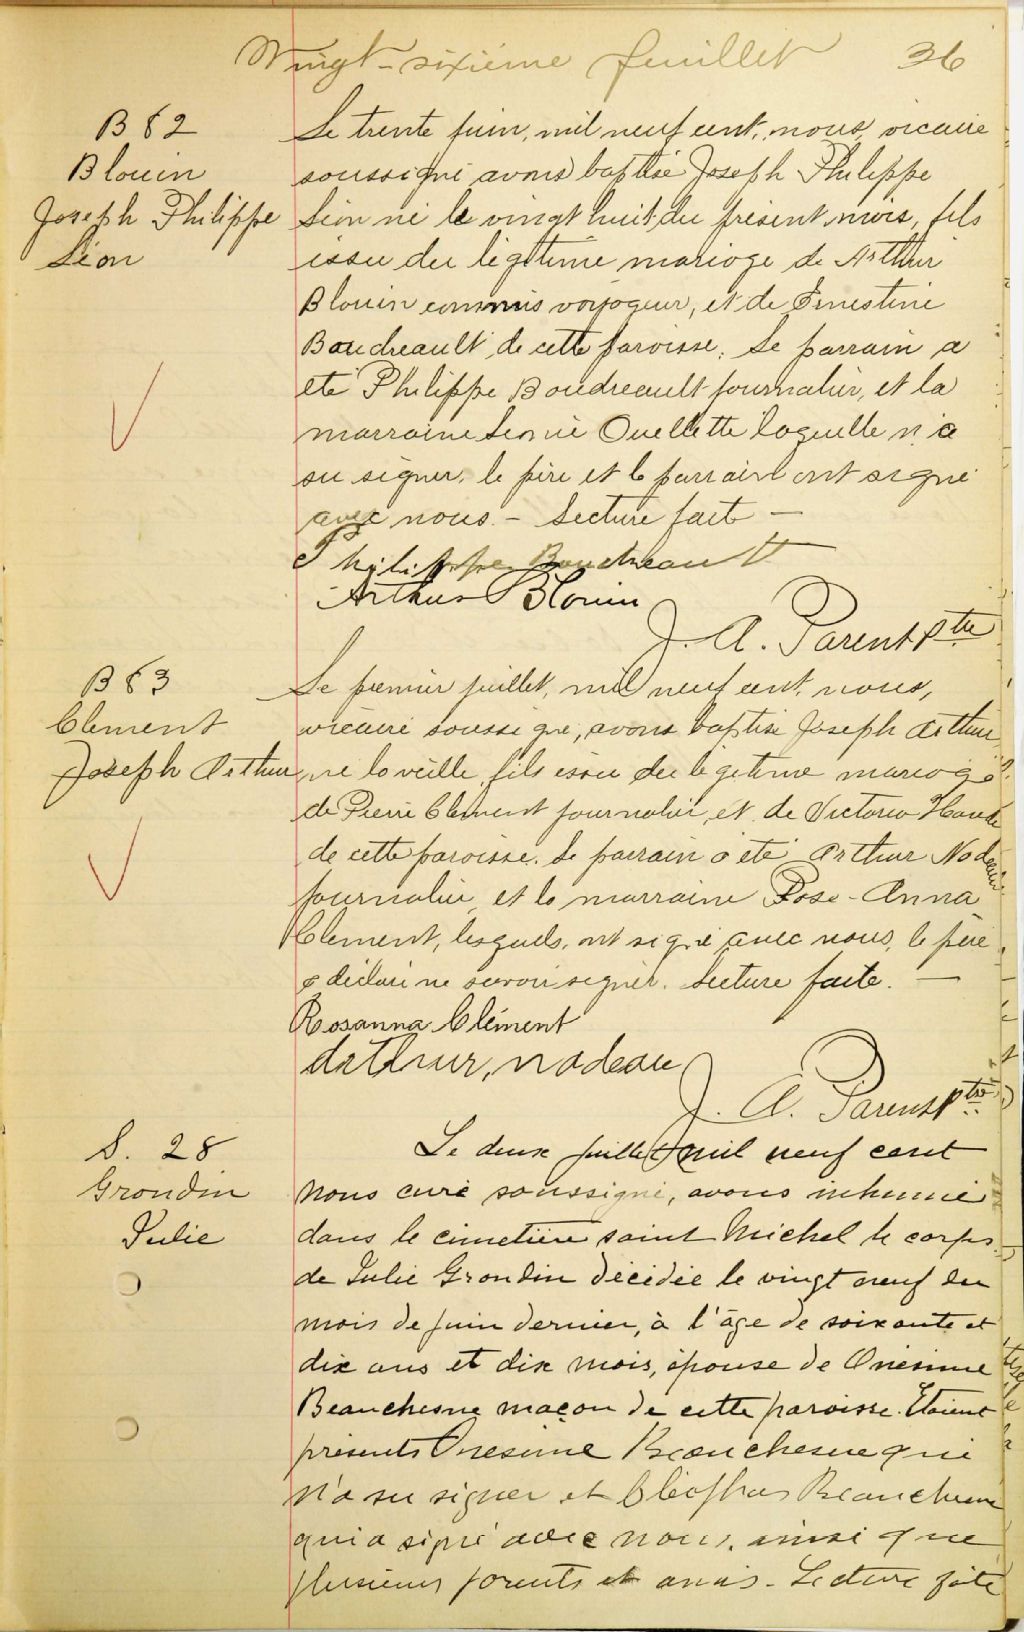 Vingt-sixième feuillet 36
B 82
Blouin
Joseph Philippe
Léon
Le trente juin, mil neuf cent, nous, vicaire
soussigné avons baptisé Joseph Philippe
Léon né le vingt huit du présent mois, fils
issu du légitime mariage de Arthur
Blouin commis voyageur, et de Ernestine
Boudreault de cette paroisse. Le parrain a
été Philippe Boudreault journalier, et la
marraine Léonie Ouellette laquelle n'a
su signer, le père et le parrain ont signé
avec nous. - Lecture faite -
Philippe Boudreault
Arthur Blouin
J. A. Parent Ptre
B 83
Clement
Joseph Arthur
Le premier juillet, mil neuf cent, nous,
vicaire soussigné, avons baptisé Joseph Arthur
né la veille, fils issu du légitime mariage
de Pierre Clement journalier, et de Victoria Houde
de cette paroisse. Le parrain a été Arthur Nadeau
journalier, et la marraine Rose-Anna
Clement, lesquels ont signé avec nous, le père
a déclaré ne savoir signer. Lecture faite. -
Rosanna Clément
Arthur, nadeau
J. A. Parent Ptre
S. 28
Grondin
Julie
Le deux juillet mil neuf cent
nous curé soussigné, avons inhumé
dans le cimetière saint Michel le corps
de Julie Grondin décédée le vingt neuf du
mois de juin dernier, à l'âge de soixante et
dix ans et dix mois, épouse de Onésime
Beauchesne maçon de cette paroisse. Etaient
présents Onesime Beauchesne qui
n'a su signer et Cléophas Beauchesne
qui a signé avec nous, ainsi que
plusieurs parents et amis - Lecture faite